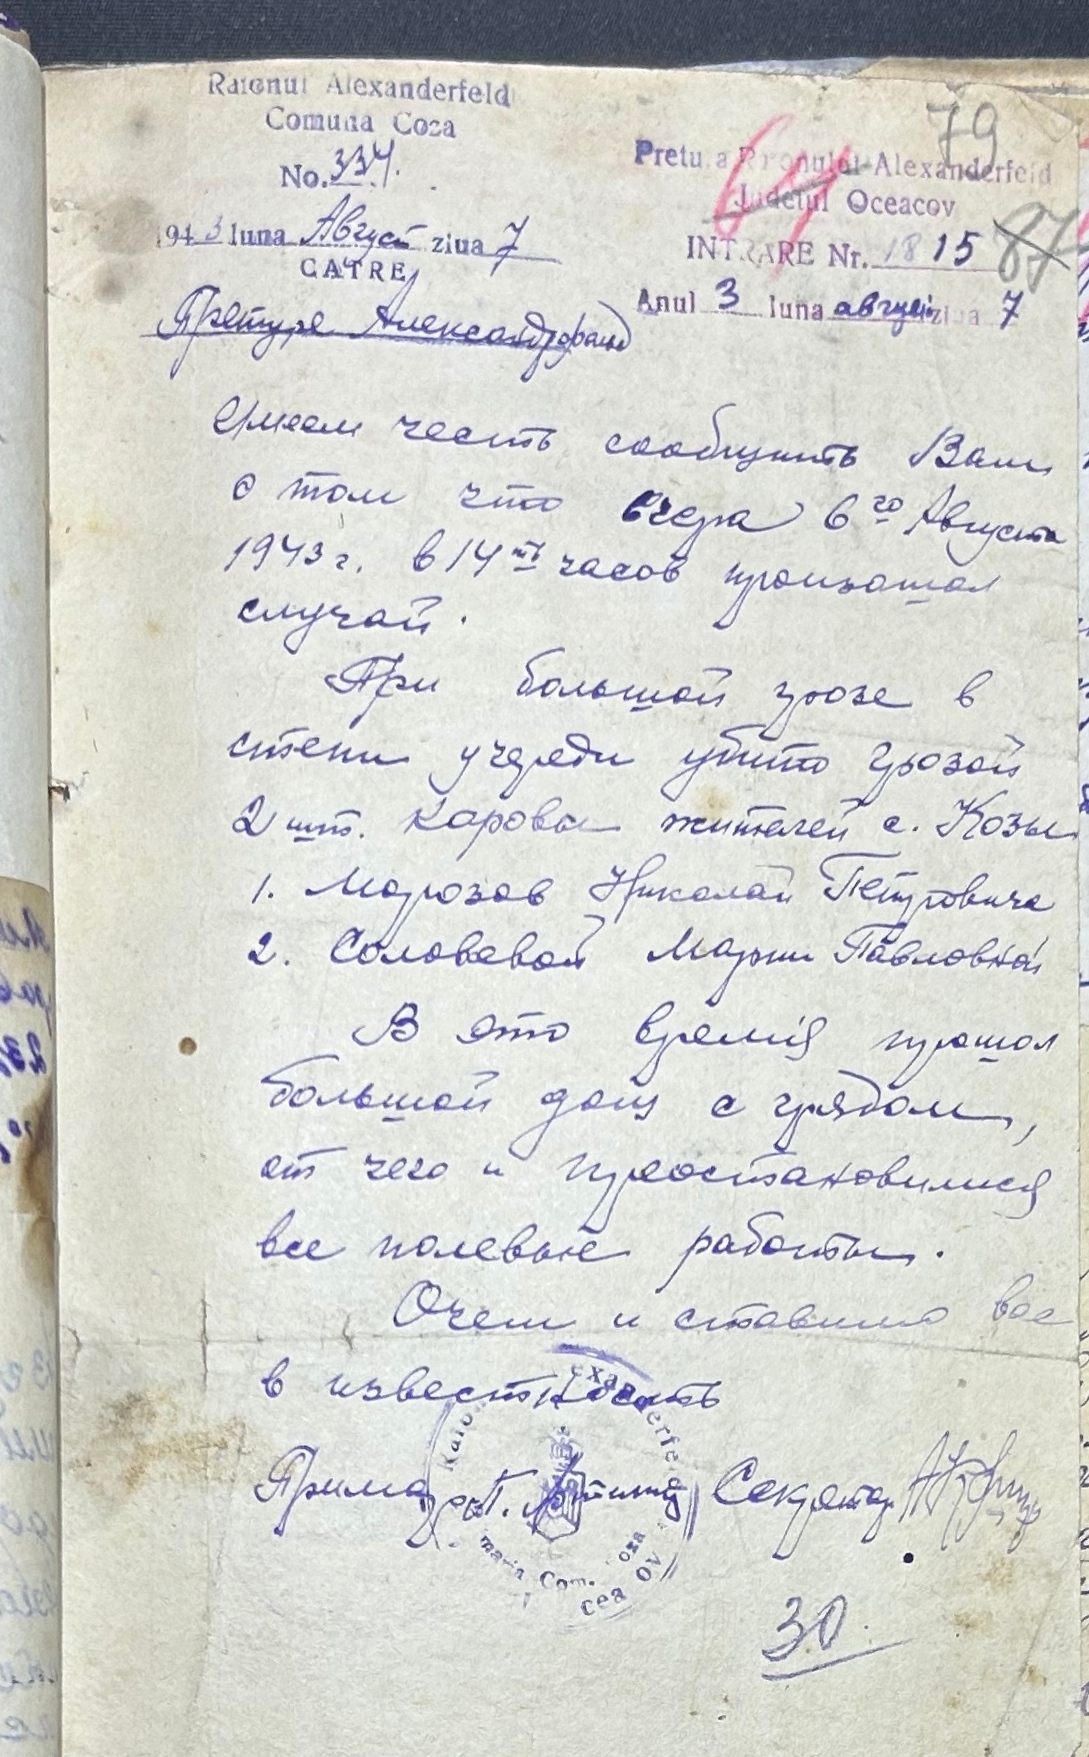 Raionul Alexanderfeld
Comuna Coza
No. 334.
1943 luna Август ziua 7
CATRE
Претуре Александрфельд
79
64
Pretura Raionului Alexanderfeld
Judetul Oceacov
INTRARE Nr. 1815
87
Anul 3 luna август ziua 7
Имеем честь сообщить Вам
о том что вчера 6го Августа
1943 г. в 14ть часов произашол
случай.
При большой грозе в
степи учереди убито грозой
2 шт. каровы жителей с. Козы
1. Морозов Николай Петровича
2. Соловевой Марии Павловной
В это время прошол
большой дощ с градом,
от чего и преостановилися
все полевые работы.
Очем и ставимо вас
в известность
Примарь П. Секретарь
Raion xanderfeld
maria Com. oza
cea OV
30.